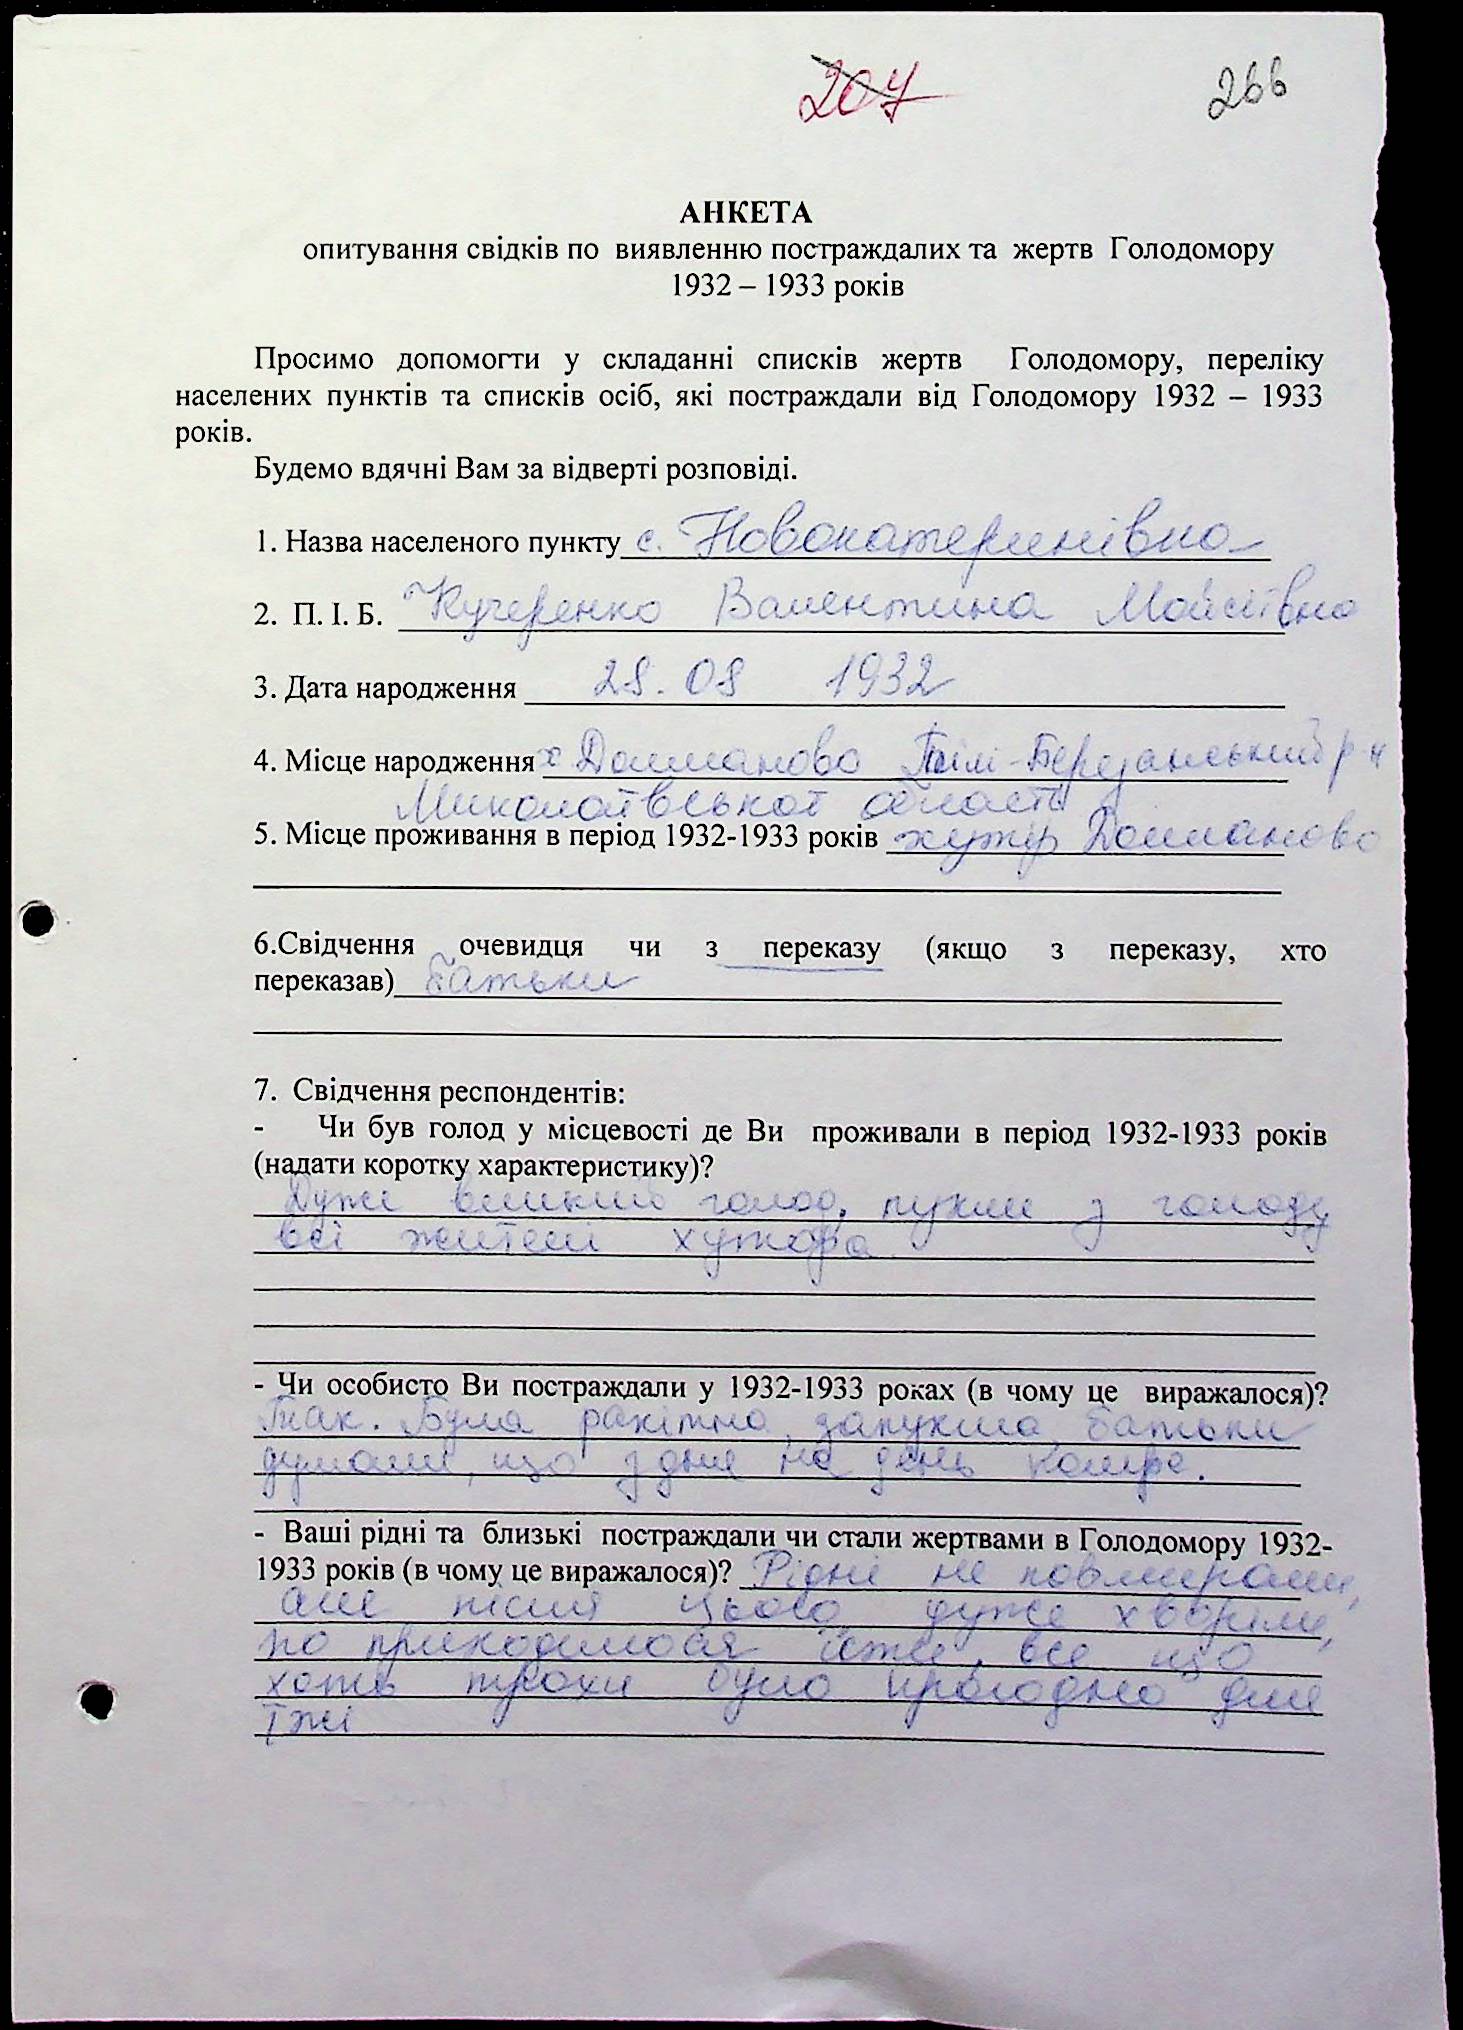 207 266
АНКЕТА
опитування свідків по виявленню постраждалих та жертв Голодомору
1932 – 1933 років
Просимо допомогти у складанні списків жертв Голодомору, переліку
населених пунктів та списків осіб, які постраждали від Голодомору 1932 – 1933
років.
Будемо вдячні Вам за відверті розповіді.
1. Назва населеного пункту с. Новокатеринівка
2. П. І. Б. Кучеренко Валентина Мойсіївна
3. Дата народження 28. 08 1932
4. Місце народження х Долманово Тілі-Березанський р-н
Миколаївської області
5. Місце проживання в період 1932-1933 років хутір Долманово
6.Свідчення очевидця чи з переказу (якщо з переказу, хто
переказав) батьки
7. Свідчення респондентів:
- Чи був голод у місцевості де Ви проживали в період 1932-1933 років
(надати коротку характеристику)?
Дуже великий голод, пухли з голоду
всі жителі хутора
- Чи особисто Ви постраждали у 1932-1933 роках (в чому це виражалося)?
Так. Була рахітна, запухла, батьки
думали, що з дня на день помре.
- Ваші рідні та близькі постраждали чи стали жертвами в Голодомору 1932-
1933 років (в чому це виражалося)? Рідні не повмирали,
але після цього дуже хворіли,
бо приходилося їсти все що
хоть трохи було пригодно для
їжі